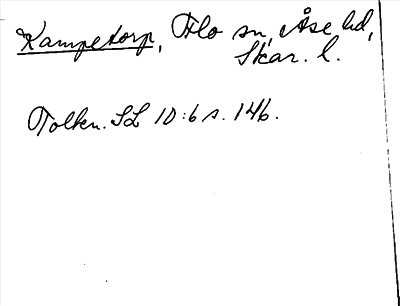 Kampetorp, Flo sn, Åse hd,
Skar. l.
Tolkn. SL 10:6 s. 146.